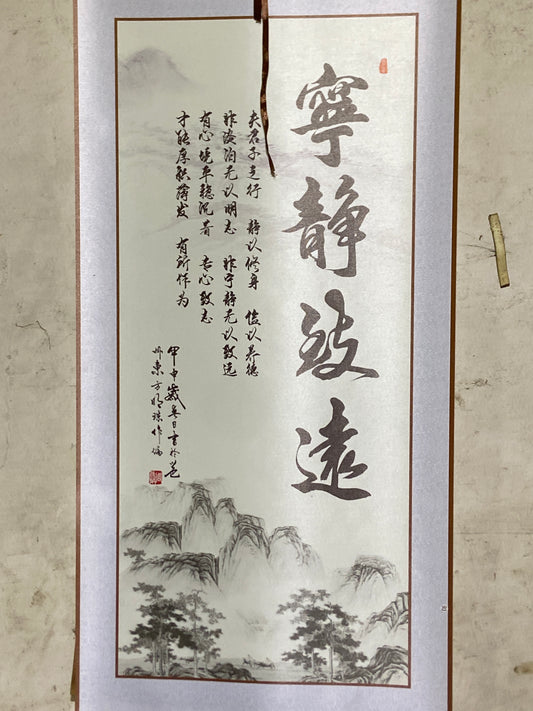 寧靜致遠
夫君子之行 静以修身 俭以养德
非淡泊无以明志 非宁静无以致远
有心境平稳沉着 专心致志
才能厚积薄发 有所作为
甲申歲冬日書於
州東方明珠作偏